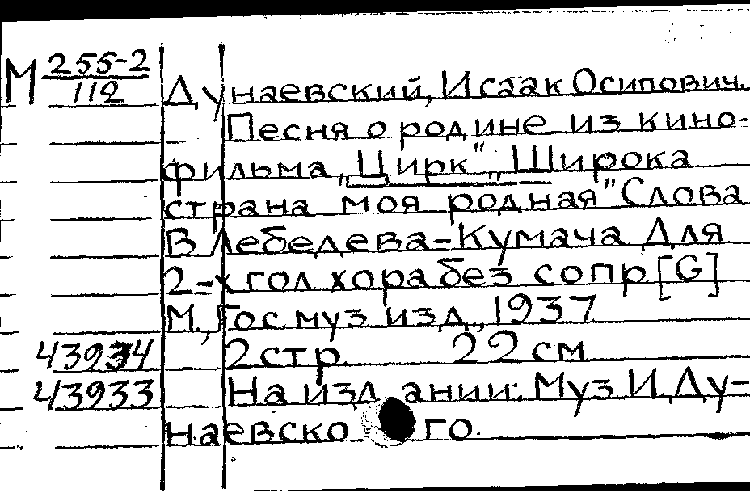 М 255-2
112
Дунаевский, Исаак Осипович.
Песня о родине из кино-
фильма „Цирк" „Широка
страна моя родная" Слова
В Лебедева-Кумача Для
2-х гол хора без сопр [G]
М., Гос муз изд, 1937
43934 2 стр 22 см
43933 На издании: Муз И. Ду-
наевского.